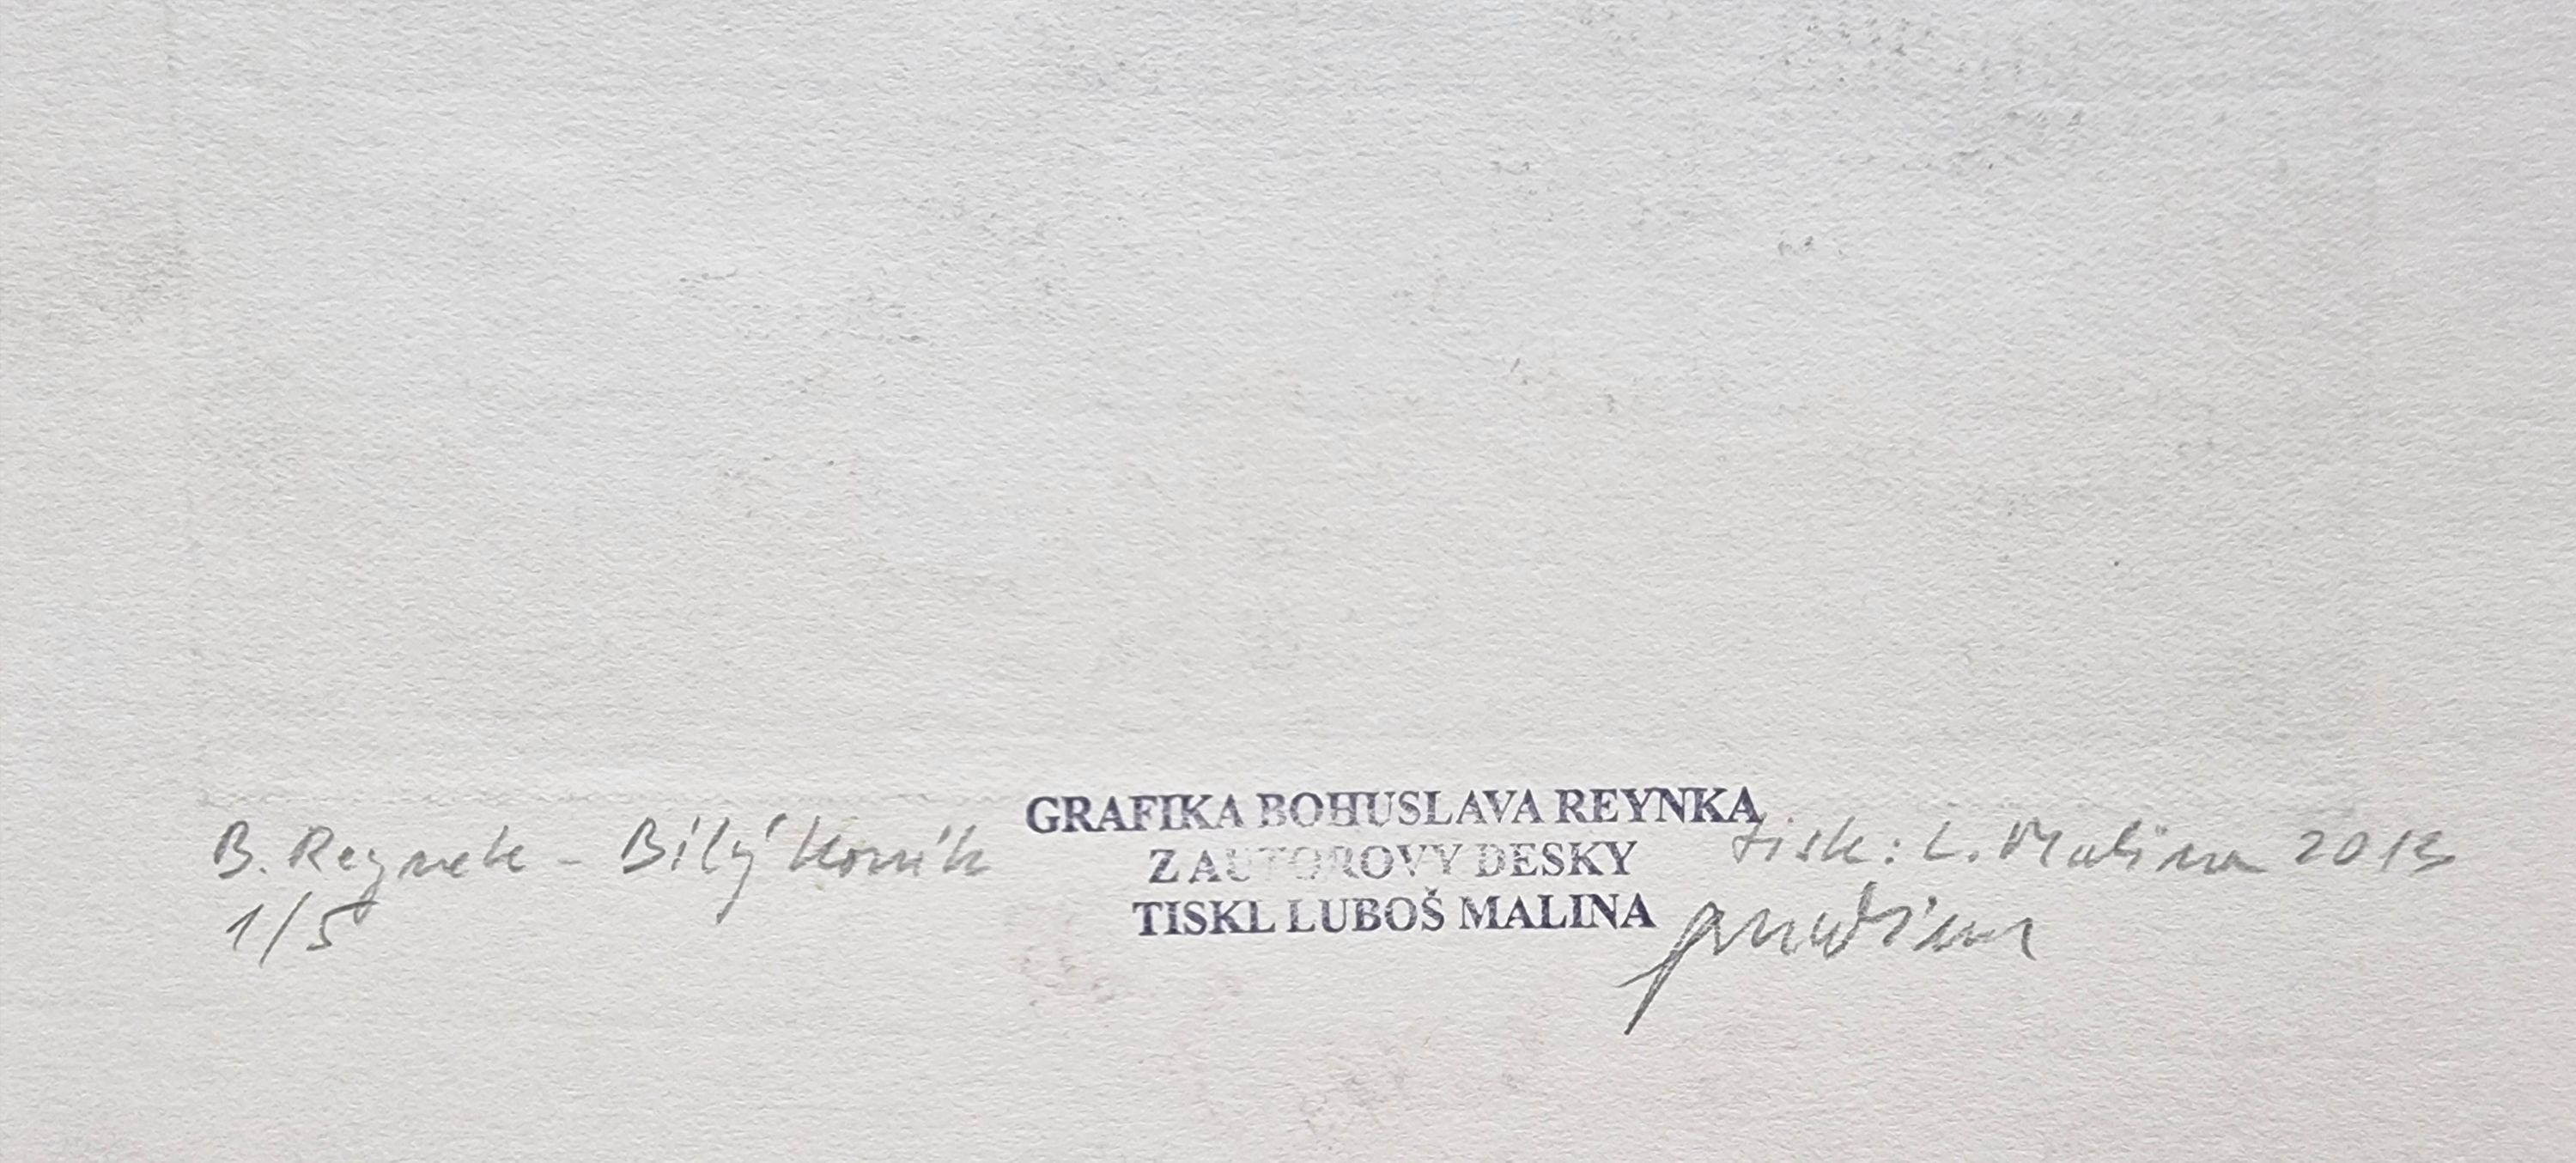 B. Reynek - Bílý koník
1/5
GRAFIKA BOHUSLAVA REYNKA
Z AUTOROVY DESKY
TISKL LUBOŠ MALINA
tisk: L. Malina 2013